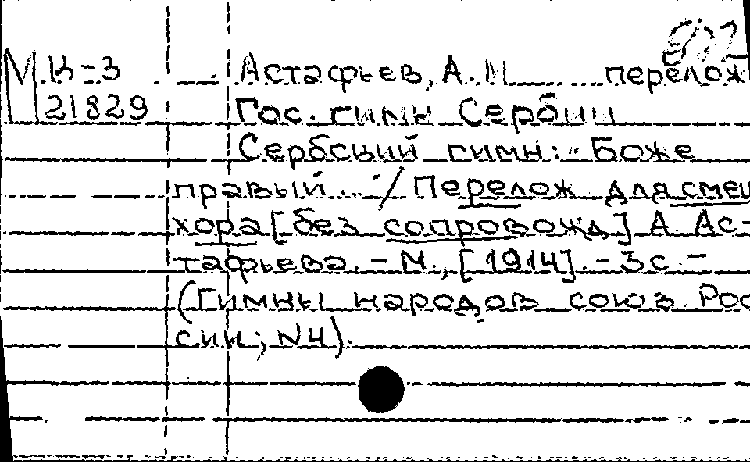 М К-3 Астафьев, А.М. перелож
21829 Гос. гимн Сербии
Сербский гимн: "Боже
правый..." / Перелож. для смеш
хора [без сопровожд] А Ас-
тафьева. - М., [1914]. - 3с. -
(Гимны народов союз. Рос
сии; N4).